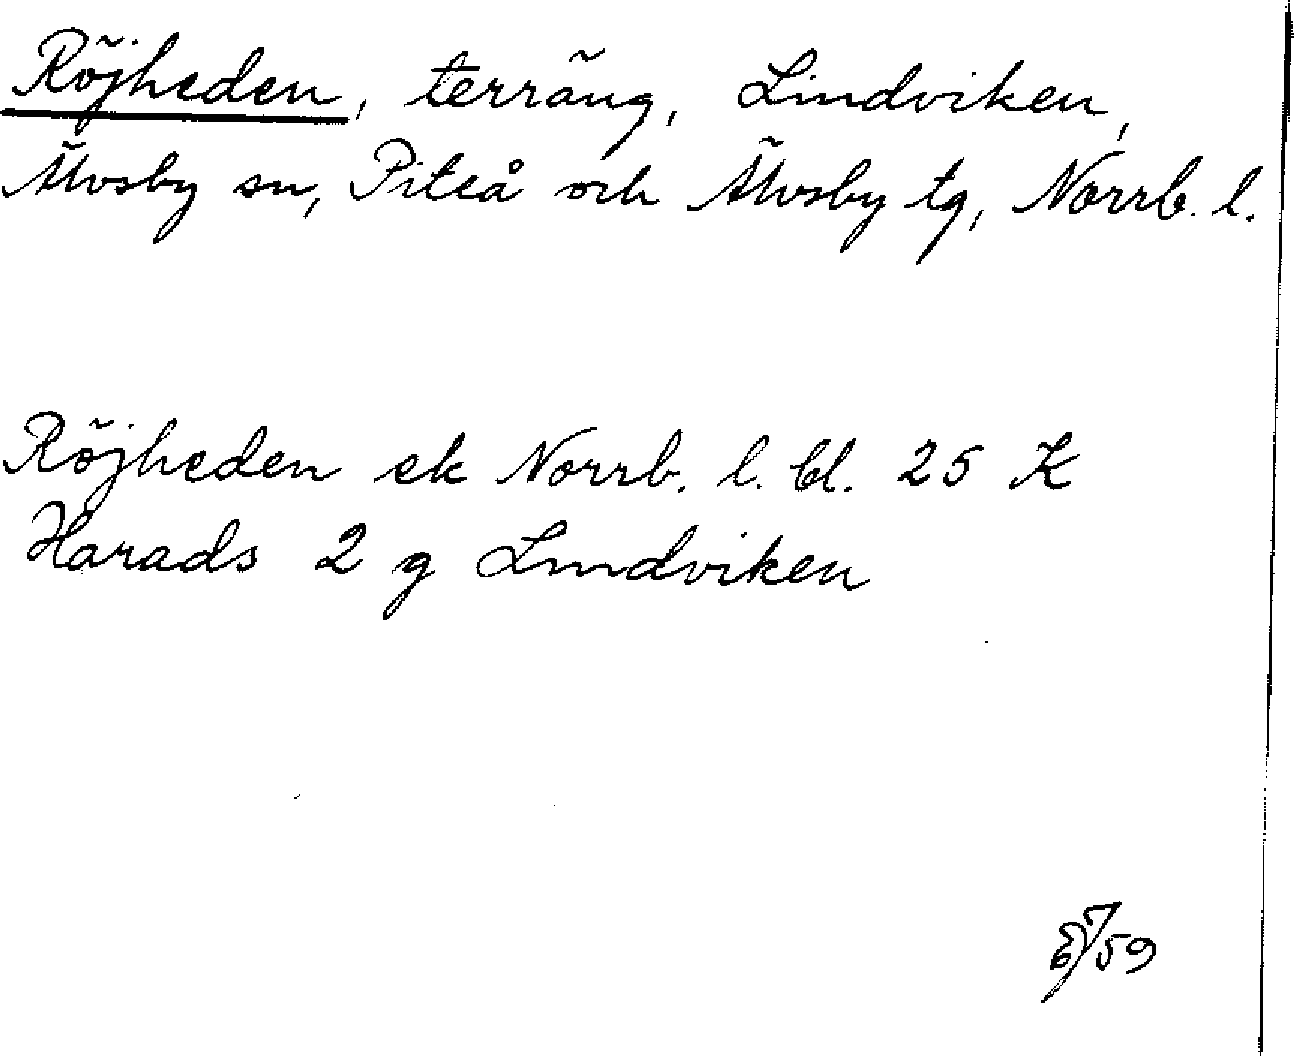 Röjheden, terräng, Lindviken,
Älvsby sn, Piteå och Älvsby tg, Norrb. l.
Röjheden ek Norrb. l. bl. 25 K
Harads 2 g Lindviken
/59